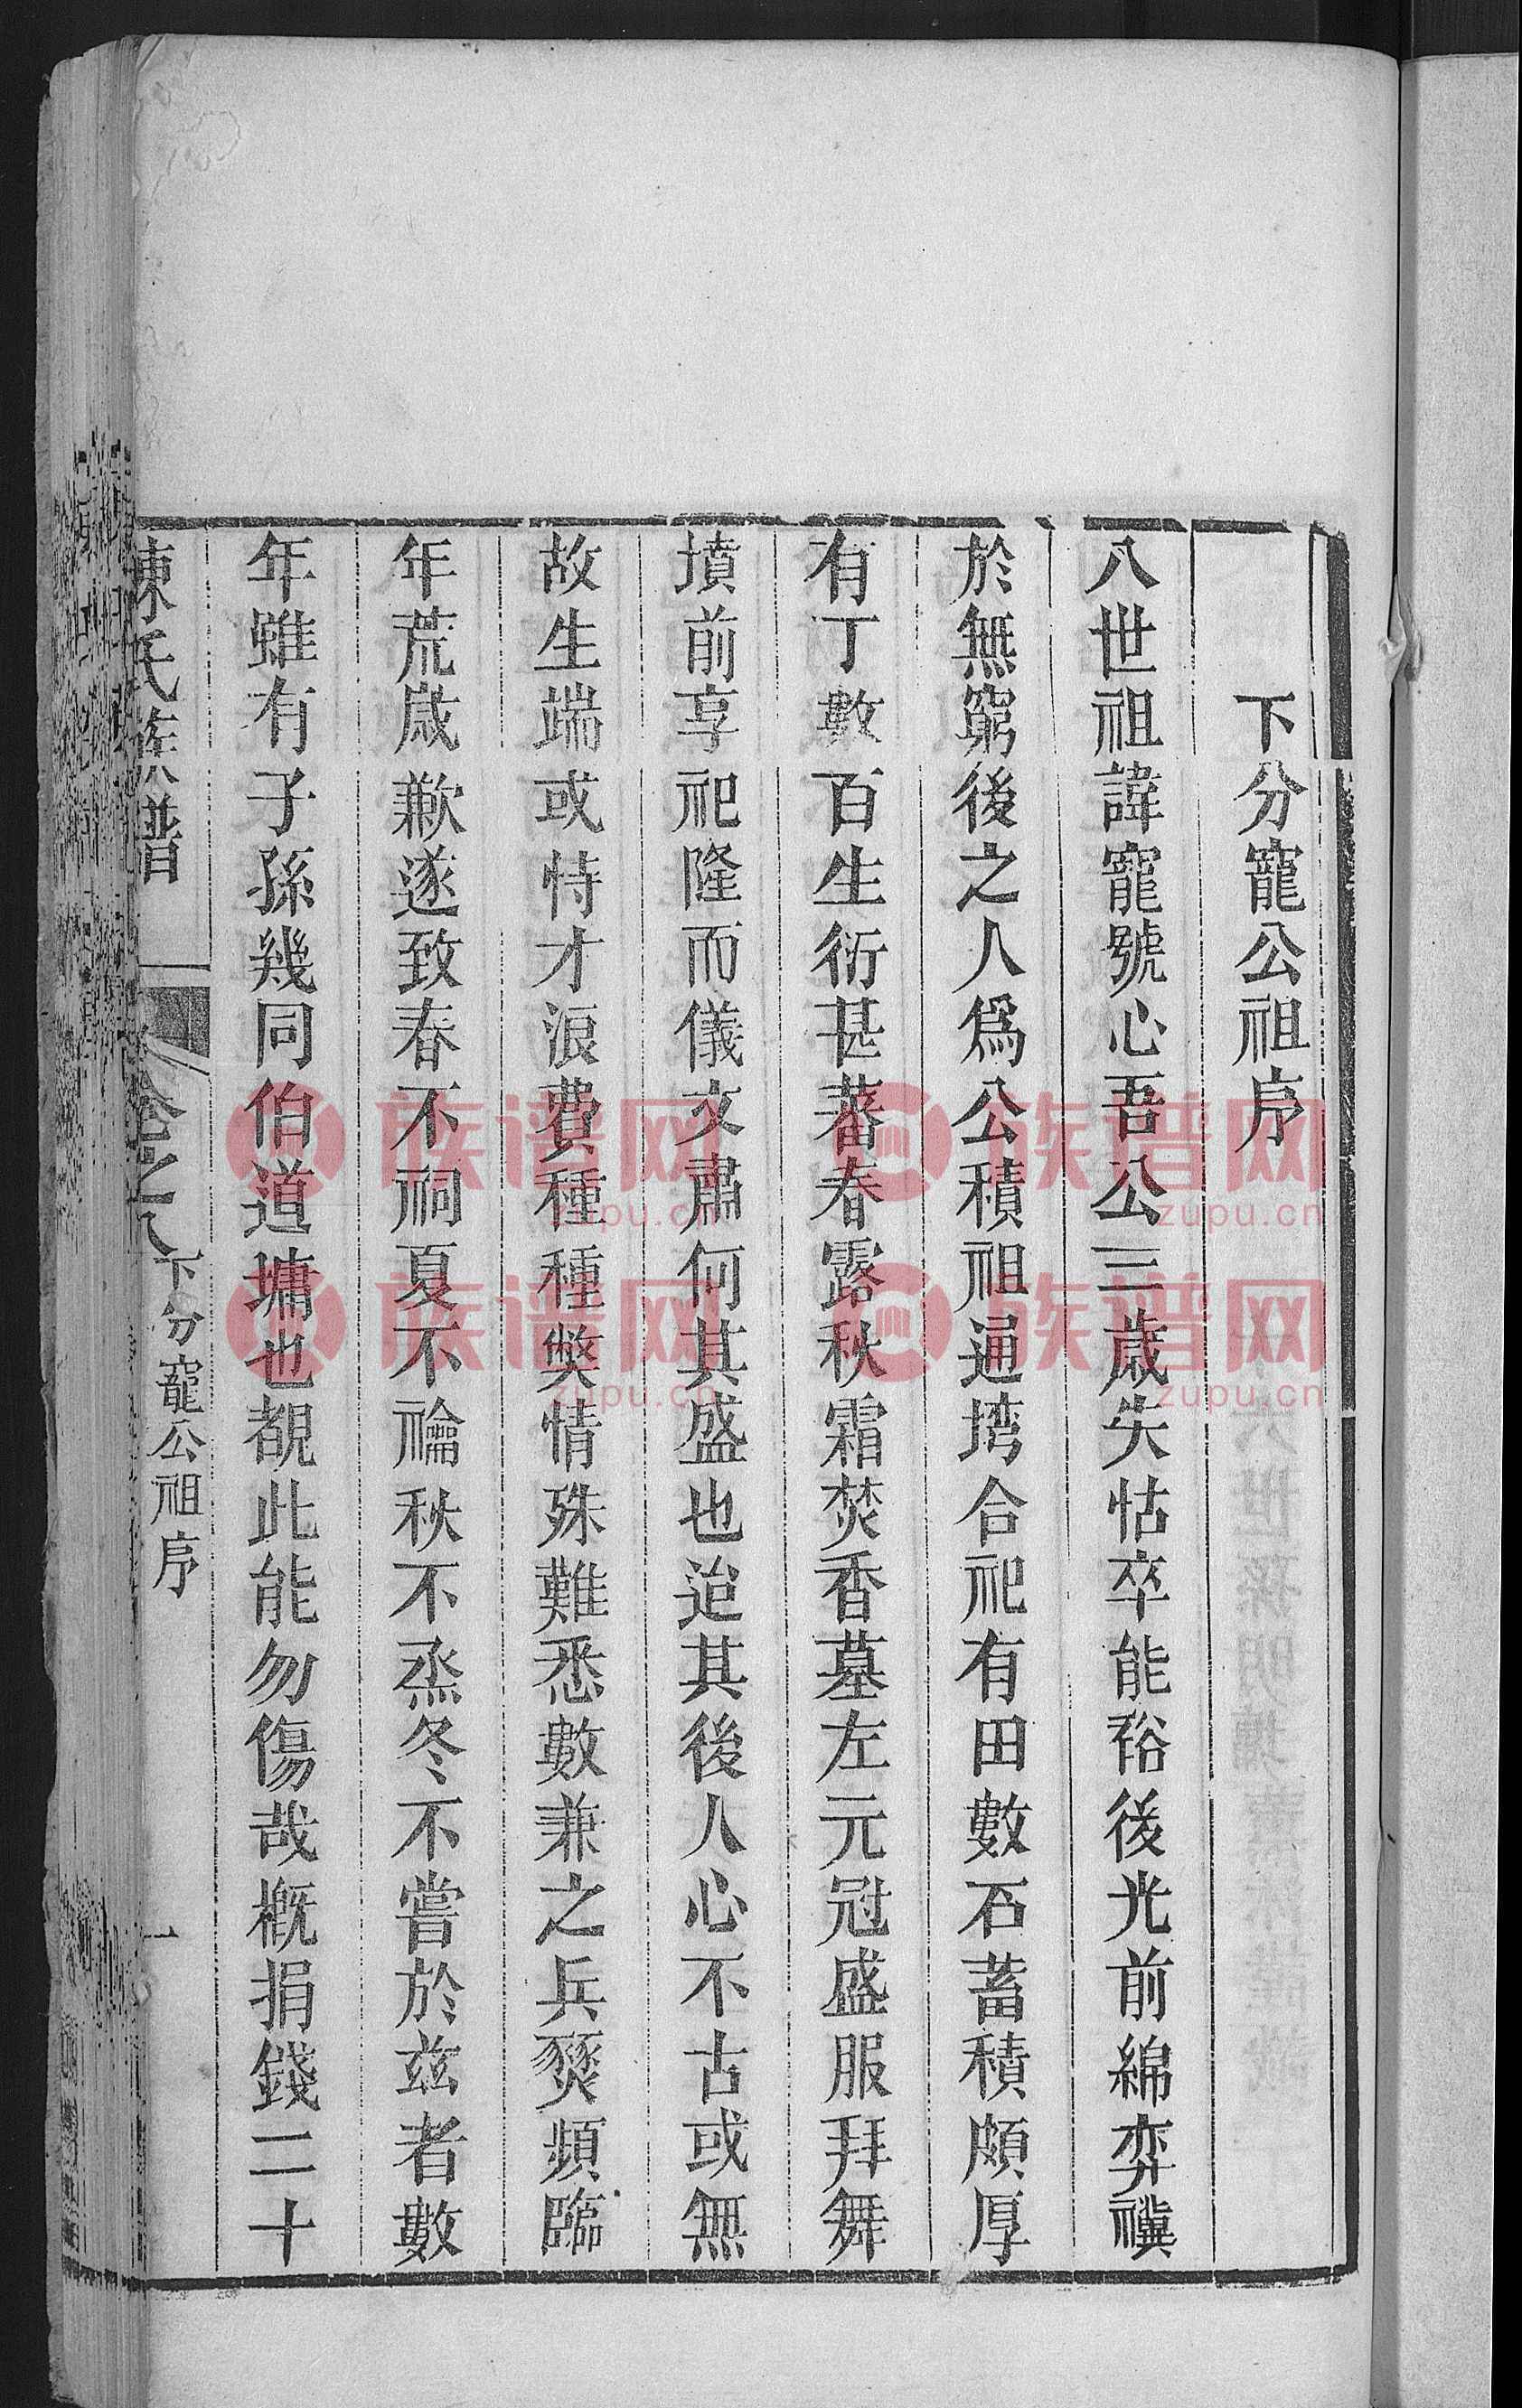 下分寵公祖序
八世祖諱寵號心吾公三歲失怙卒能裕後光前綿奕禩
於無窮後之人爲公積祖通塆合祀有田數石蓄積頗厚
有丁數百生衍甚蕃春露秋霜焚香墓左元冠盛服拜舞
墳前享祀隆而儀文肅何其盛也迨其後人心不古或無
故生端或恃才浪費種種弊情殊難悉數兼之兵燹頻臨
年荒歲歉遂致春不祠夏不禴秋不烝冬不嘗於茲者數
年雖有子孫幾同伯道墉也覩此能勿傷哉概捐錢二十
陳氏族譜
卷之八
下分寵公祖序
一
族谱网
zupu.cn
族谱网
zupu.cn
族谱网
zupu.cn
族谱网
zupu.cn